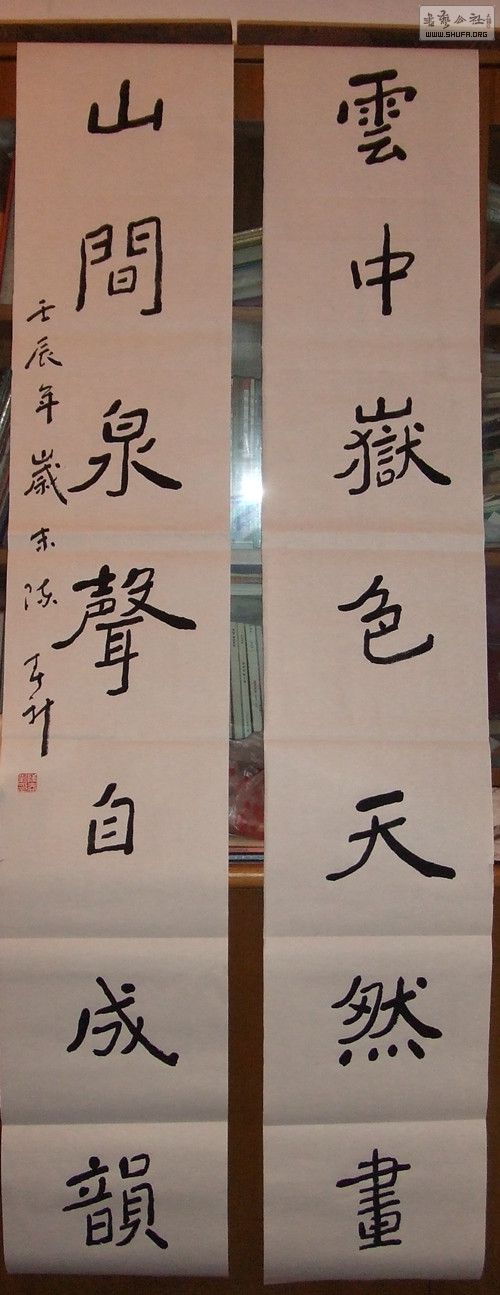 雲中嶽色天然畫
山間泉聲自成韻
壬辰年歲末陳
書藝公社
WWW.SHUFA.ORG